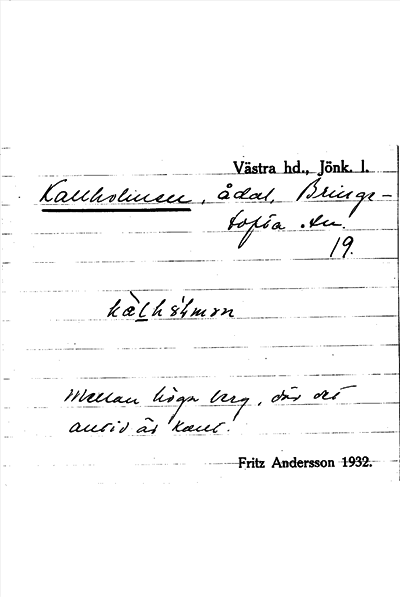 Västra hd., Jönk. l.
Kallholmen, ådal, Brings-
tofta sn.
19.
kàlhólmɘn
Mellan höga berg, där det
alltid är kallt.
Fritz Andersson 1932.